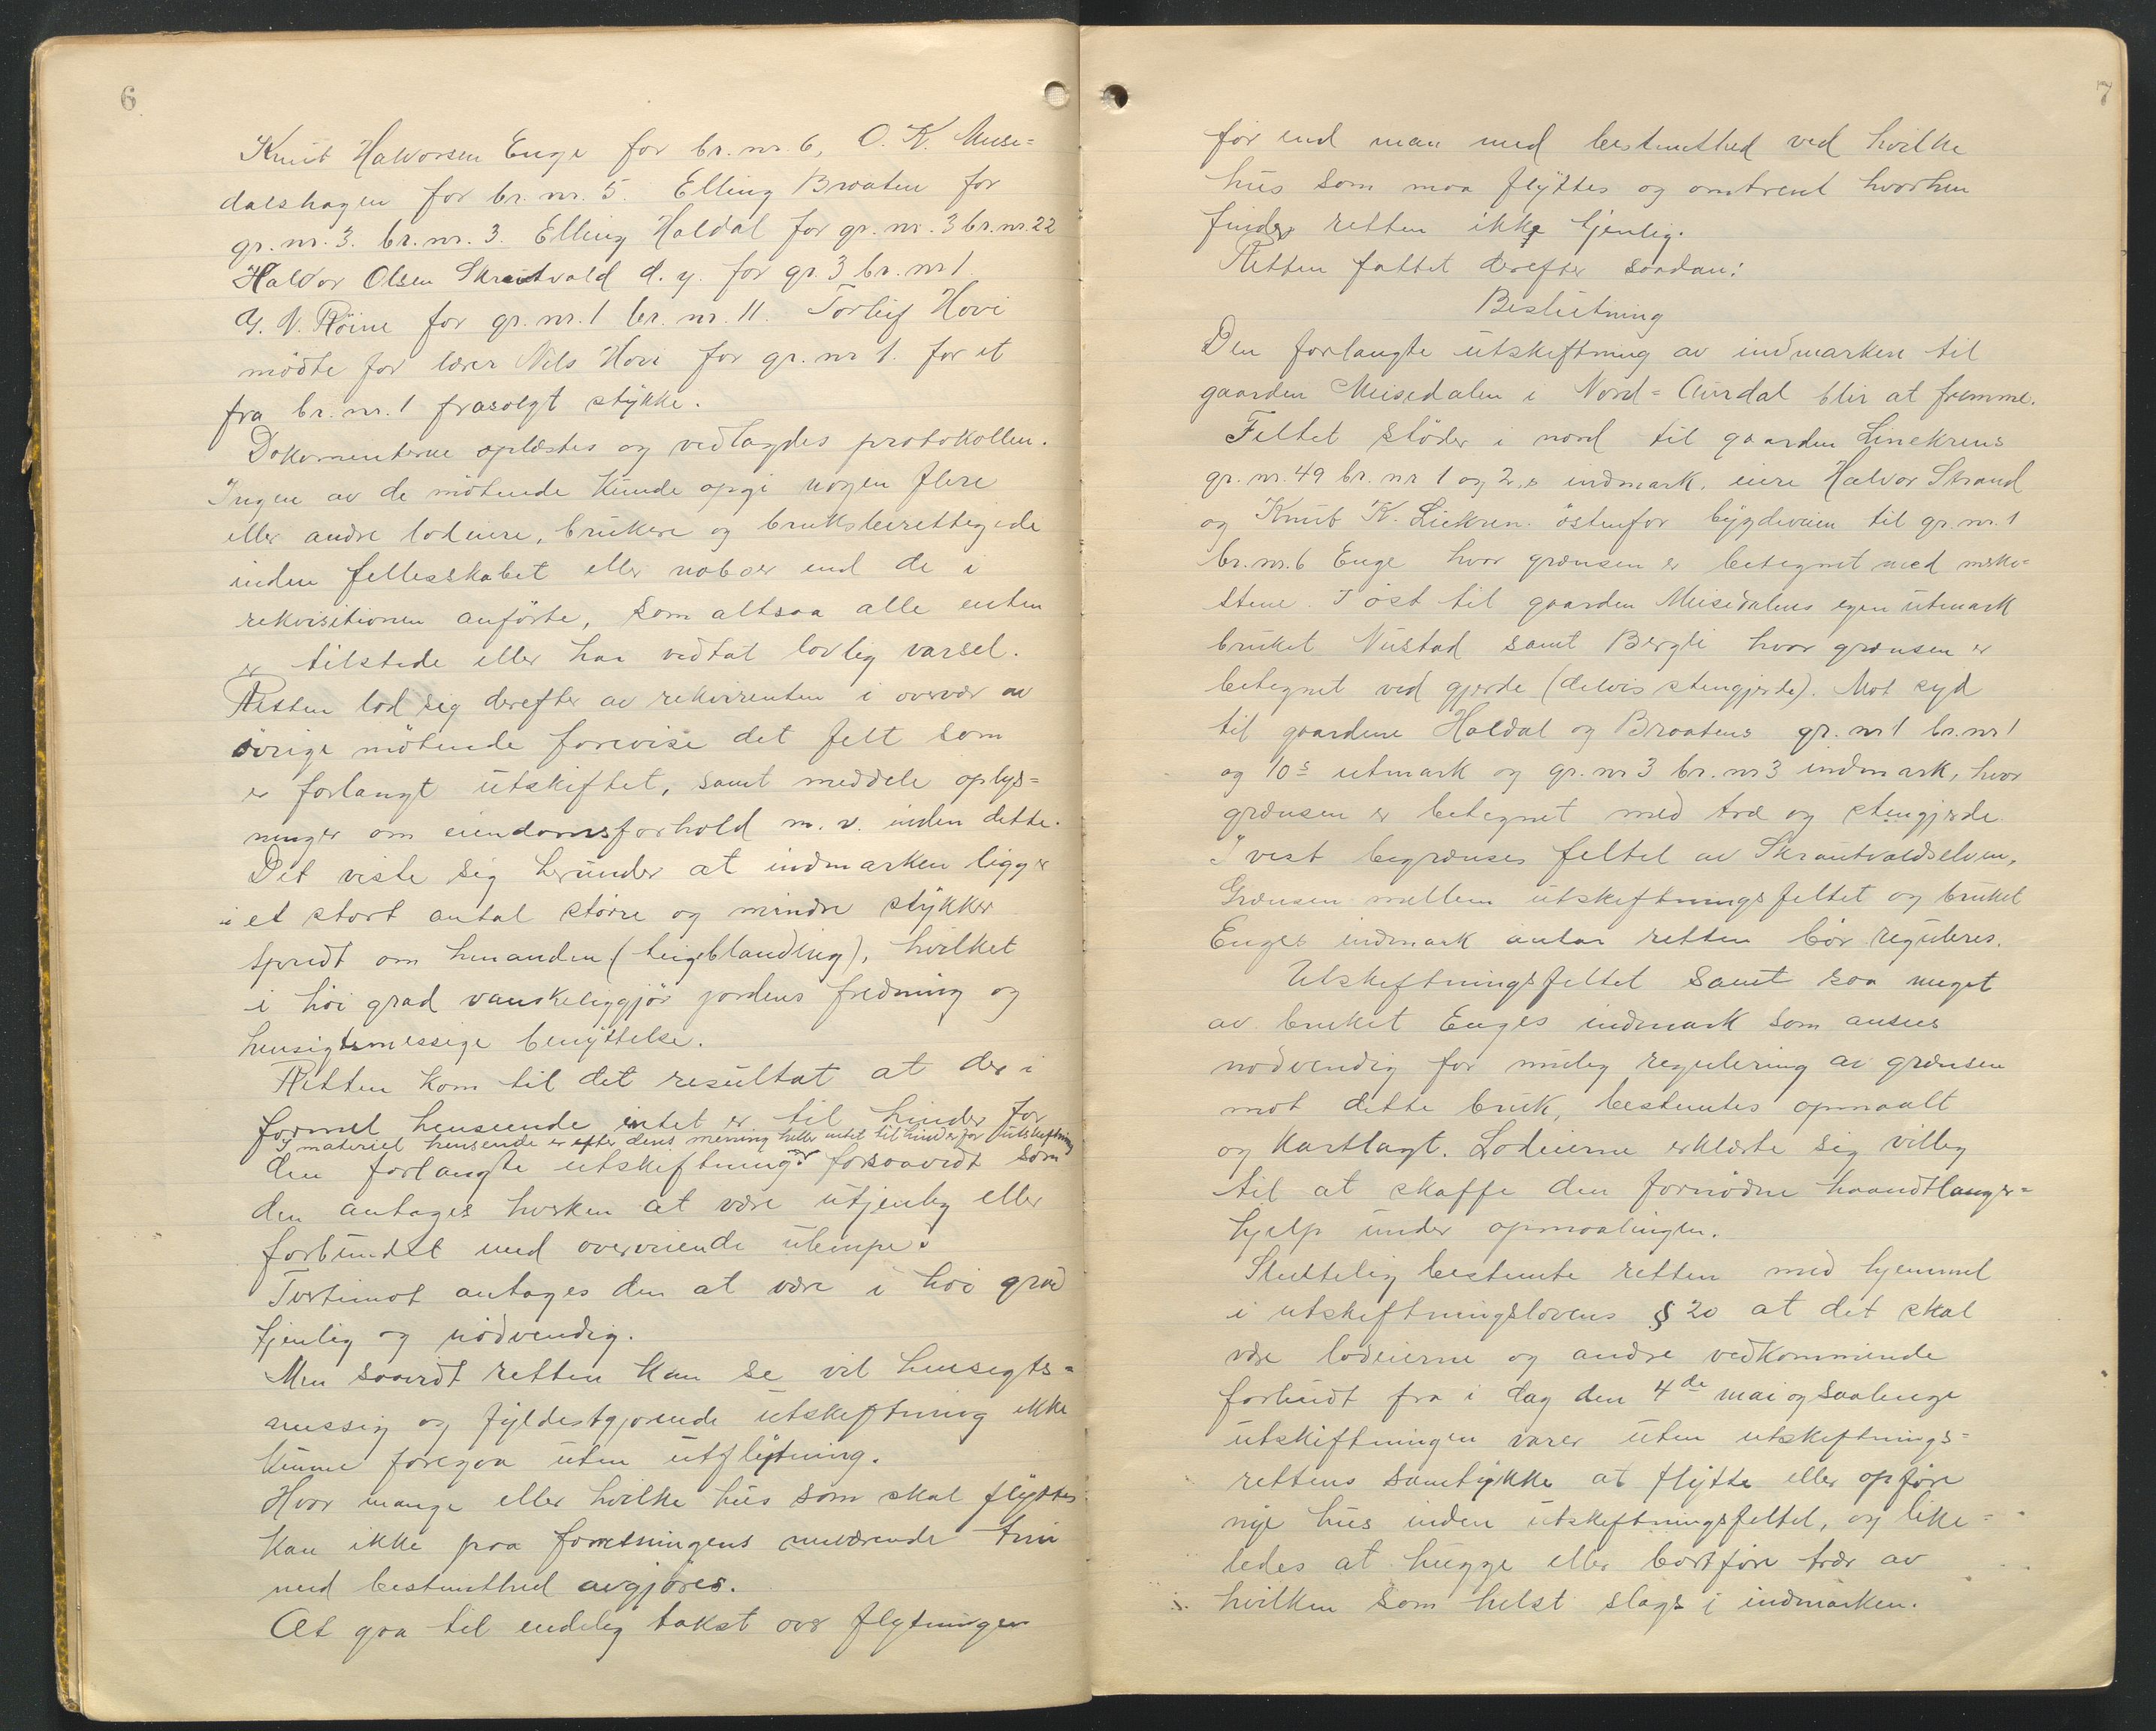 6
Knut Halvorsen Enge for br. nr. 6, O. K. Muse=
dalshagen for br. nr. 5. Elling Braaten for
gr. nr. 3. br. nr. 3. Elling Haldal for gr. nr. 3 br. nr. 22
Halvor Olsen Skrautvald d. y. for gr. 3 br. nr 1.
G. N. Röine for gr. nr. 1 br. nr. 11. Torleif Hovi
mödte for lærer Nils Hovi for gr. nr 1. for et
fra br. nr. 1 frasolgt stykke.
Dokumenterne oplæstes og vedlagdes protokollen.
Ingen av de mötende kunde opgi nogen flere
eller andre lodeiere, brukere og bruksberettigede
inden fellesskabet eller naboer end de i
rekvisitionen anförte, som altsaa alle enten
er tilstede eller har vedtat lovlig varsel.
Retten lod sig derefter av rekvirenten i overvær av
övrige mötende forevise det felt som
er forlangt utskiftet, samt meddele oplys=
ninger om eiendomsforhold m. v. inden dette.
Det viste sig herunder at indmarken ligger
i et stort antal större og mindre stykker
spredt om hinanden (teigblanding), hvilket
i höi grad vanskeliggjör jordens fredning og
hensigtsmessige benyttelse.
Retten kom til det resultat at der i
formel henseende intet er til hinder for
I materiel henseende er efter dens mening heller intet til hinder for utskiftning
den forlangte utskiftning forsaavidt som
den antages hverken at være utjenlig eller
forbundet med overveiende ulempe.
Tvertimot antages den at være i höi grad
tjenlig og nödvendig.
Men saavidt retten kan se vil hensigts=
messig og fyldestgjörende utskiftning ikke
kunne foregaa uten utflytning.
Hvor mange eller hvilke hus som skal flyttes
kan ikke paa forretningens nuværende trin
med bestemthed avgjöres.
At gaa til endelig takst over flytningen
7
för end man med bestemthed ved hvilke
hus som maa flyttes og omtrent hvorhen
finder retten ikke tjenlig.
Retten fattet derefter saadan:
Beslutning
Den forlangte utskiftning av indmarken til
gaarden Meisedalen i Nord=Aurdal blir at fremme.
Feltet stöder i nord til gaarden Linekrens
gr. nr. 49 br. nr 1 og 2,s indmark, eiere Halvor Strand
og Knut K. Liekren. östenfor bygdeveien til gr. nr. 1
br. nr. 6 Enge hvor grænsen er betegnet med merke=
stene. I öst til gaarden Meisedalens egen utmark
bruket Nustad samt Bergli hvor grænsen er
betegnet ved gjerde (delvis stengjerde). Mot syd
til gaardene Haldal og Braatens gr. nr 1 br. nr 1
og 10s utmark og gr. nr 3 br. nr 3 indmark, hvor
grænsen er betegnet med træ og stengjerde.
I vest begrænses feltet av Skrautvaldselven.
Grænsen mellem utskiftningsfeltet og bruket
Enges indmark antar retten bör reguleres.
Utskiftningsfeltet samt saa meget
av bruket Enges indmark som ansees
nödvendig for mulig regulering av grænsen
mot dette bruk, bestemtes opmaalt
og kartlagt. Lodeierne erklærte sig villig
til at skaffe den fornödne haandtlanger=
hjelp under opmaalingen.
Sluttelig bestemte retten med hjemmel
i utskiftningslovens § 20 at det skal
være lodeierne og andre vedkommende
forbudt fra i dag den 4de mai og saalenge
utskiftningen varer uten utskiftnings=
rettens samtykke at flytte eller opföre
nye hus inden utskiftningsfeltet, og like=
ledes at hugge eller bortföre trær av
hvilken som helst slags i indmarken.